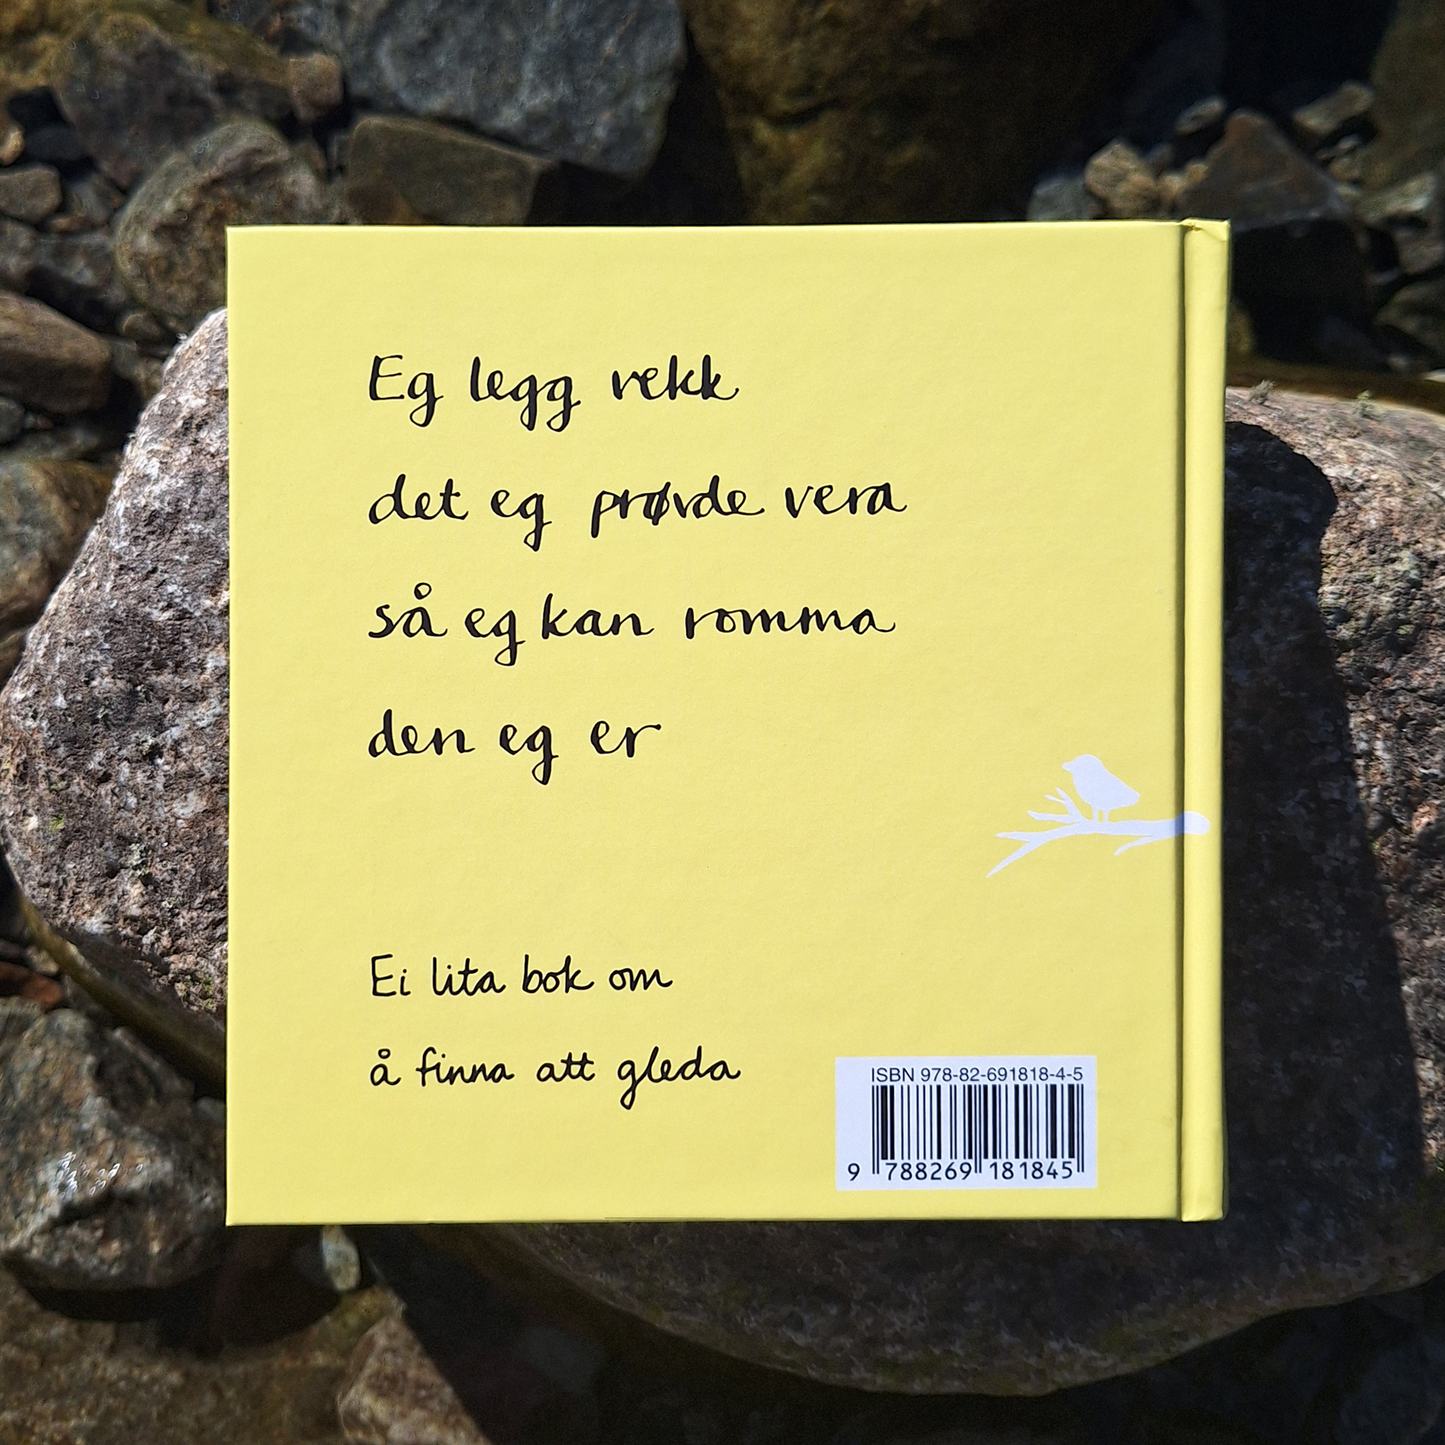 Eg legg vekk
det eg prøvde vera
så eg kan romma
den eg er
Ei lita bok om
å finna att gleda
ISBN 978-82-691818-4-5
9 788269 181845